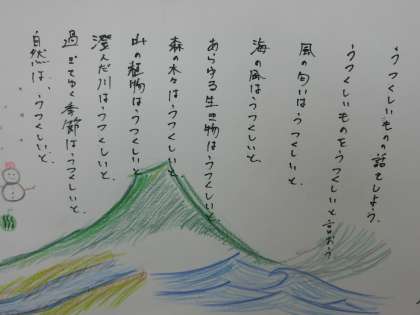 うつくしいものの話をしよう。
うつくしいものをうつくしいと言おう
風の匂いはうつくしいと。
海の風はうつくしいと。
あらゆる生き物はうつくしいと。
森の木々はうつくしいと。
山の植物はうつくしいと。
澄んだ川はうつくしいと。
過ぎてゆく季節はうつくしいと。
自然は、うつくしいと。